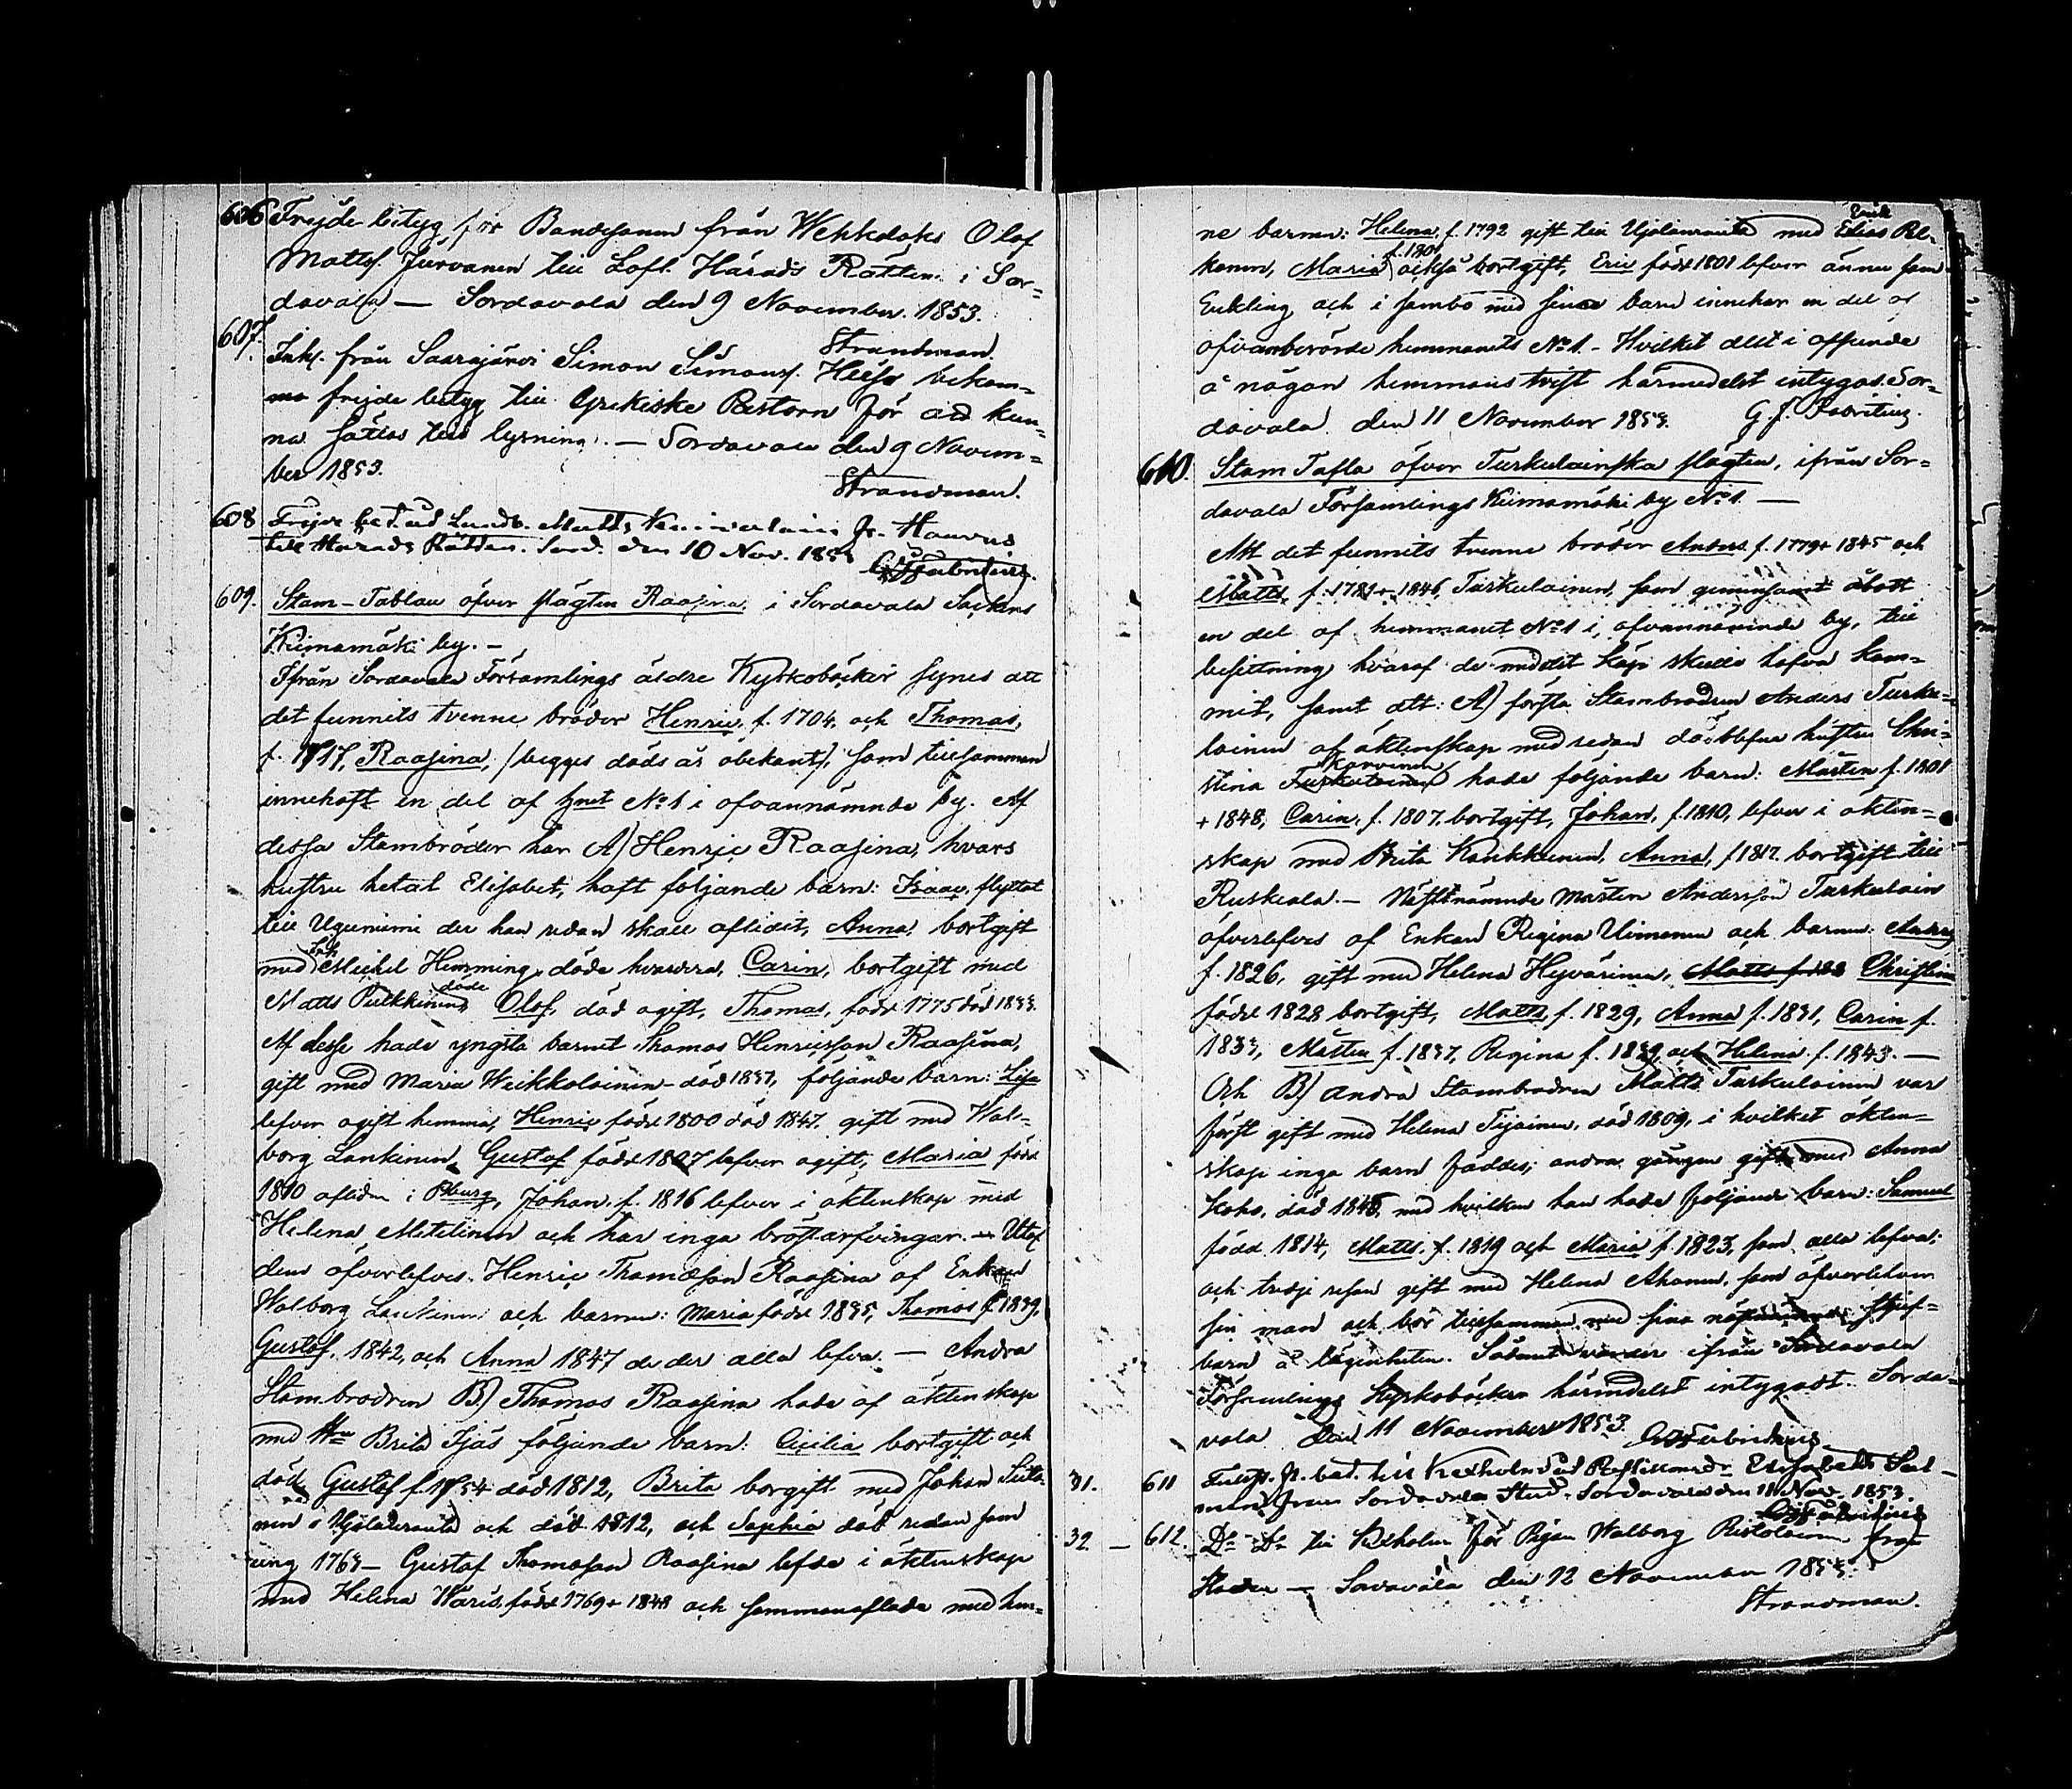 606 Frejde betyg för Bandesonen från Wehkdaks Olof
Matts. Jurvanen till Lofl. Härads Rätten i Sor=
davala — Sordavala den 9 November 1853.
Strandman.
607. Inhs. från Saarajärvi Simon Simonss. bekom=
ma frejde betyg till Grekiske Pastorn för att kun=
na sättas till lysning. — Sordavala den 9 Novem=
ber 1853.
Strandman.
608 Frejde bet. Matts fr.
till Härads Rätten. Sord. den 10 Nov. 1853
609. Stam-Tablau öfver slägten Raasina i Sordavala Sockens
Kiimamäki by. —
Ifrån Sordavala Församlings äldre Kyrkoböcker synes att
det funnits tvenne bröder Henric, f. 1704, och Thomas,
f. 1717, Raasina, /begges döds år obekant/, som tillsammen
innehaft en del af hmt No 1 i ofvannämnde by. Af
dessa Stambröder har A) Henric Raasina, hvars
hustru hetat Elisabet, haft följande barn: Isaac, flyttat
till Uguniemi der han redan skall aflidit, Anna, bortgift
med Enk. Michel Hemming, döda hvardera, Carin, bortgift med
Matts Pulkkinen, döde Olof, död ogift, Thomas, född 1775 död 1833.
Af desse hade yngsta barnet Thomas Henricsson Raasina,
gift med Maria Weikkolainen — död 1837, följande barn: Lisa
lefver ogift hemma, Henric född 1800 död 1847. gift med Wal=
borg Lankinen, Gustaf född 1807 lefver ogift, Maria född
1810 afliden i Pburg, Johan, f. 1816 lefver i äktenskap med
Helena Mitilinen och har inga bröstarfvingar. — Utaf
dem öfverlefves Henric Thomasson Raasina af Enkan
Walborg Lankinen och barnen: Maria född 1835, Thomas f. 1839,
Gustaf, 1842, och Anna 1847 de der alla lefva. — Andra
Stambrodren B) Thomas Raasina hade af äktenskap
med Hu Brita Tjäs följande barn: Cicilia bortgift och
död, Gustaf f. 1754 död 1812, Brita borgift med Johan
nen i och död 1812, och Sophia död redan som
ung 1763 — Gustaf Thomasson Raasina lefde i äktenskap
med Helena Waris, född 1769 + 1848 och sammanaflade med hen=
ne barnen: Helena, f. 1792 gift till med Erik Elias Pel=
konen, Maria f. 1801 också bortgift, Eric född 1801 lefver ännu som
Enkling och i sambo med sina barn innehar en del af
ofvanberörde hemmanets No 1. — Hvilket allt i afseende
å någon hemmans tvist härmedelst intygas. Sor=
davala den 11 November 1853. G. J. Fabritius.
610. Stam Tafla öfver Turkulainska slägten, ifrån Sor=
davala Församlings Kiimamäki by No 1. —
Att det funnits tvenne bröder Anders f. 1779 + 1845 och
Matts, f. 1781 + 1846, Turkulainen, som gemensamt åbott
en del af hemmanet No 1 i ofvannämnde by, till
besittning hvaraf de medelst köp skulle hafva kom=
mit, samt att: A) första Stambrodren Anders Turku=
lainen af äktenskap med redan döblefna hustru Chri=
stina Turkulainen Karvinen hade följande barn: Mårten f. 1801
+ 1848, Carin, f. 1807, bortgift, Johan, f. 1810, lefver i äkten=
skap med Brita Kaukkuinen, Anna, f. 1812. bortgift till
Ruskiala. — Näst nämnde Mårten Andersson Turkulain
öfverlefves af Enkan Regina Uimonen och barnen: Anders
f. 1826, gift med Helena Hyvärinen, Matts f. 188 Christina
född 1828 bortgift, Matts f. 1829, Anna f. 1831, Carin f.
1833, Mårten f. 1837, Regina f. 1839, och Helena f. 1843. —
Och B) andra Stambrodren Matts Turkulainen var
först gift med Helena Tijainen, död 1809, i hvilket äkten=
skap inga barn föddes; andra gången gift med Anna
Koho, död 1848, med hvilken han hade följande barn: Samuel
född 1814, Matts f. 1819 och Maria f. 1823, som alla lefva;
och tredje resan gift med Helena Ahonen, som öfverlefver
sin man och bor tillsammen med sina stjuf=
barn å lägenheten. Sådant varder ifrån Sordavala
Församlings Kyrkoböcker härmedelst intygadt. Sorda=
vala den 11 November 1853. G. J. Fabritius
31. 611 bet. till Kexholm Elisabeth
från Sordavala Stad. Sordavala den 11 Nov. 1853.
G. J. Fabritius
32. — 612. Do Do till Kexholm för Pigan Walborg Ristolainen från
Staden — Sordavala den 12 November 1853.
Strandman.